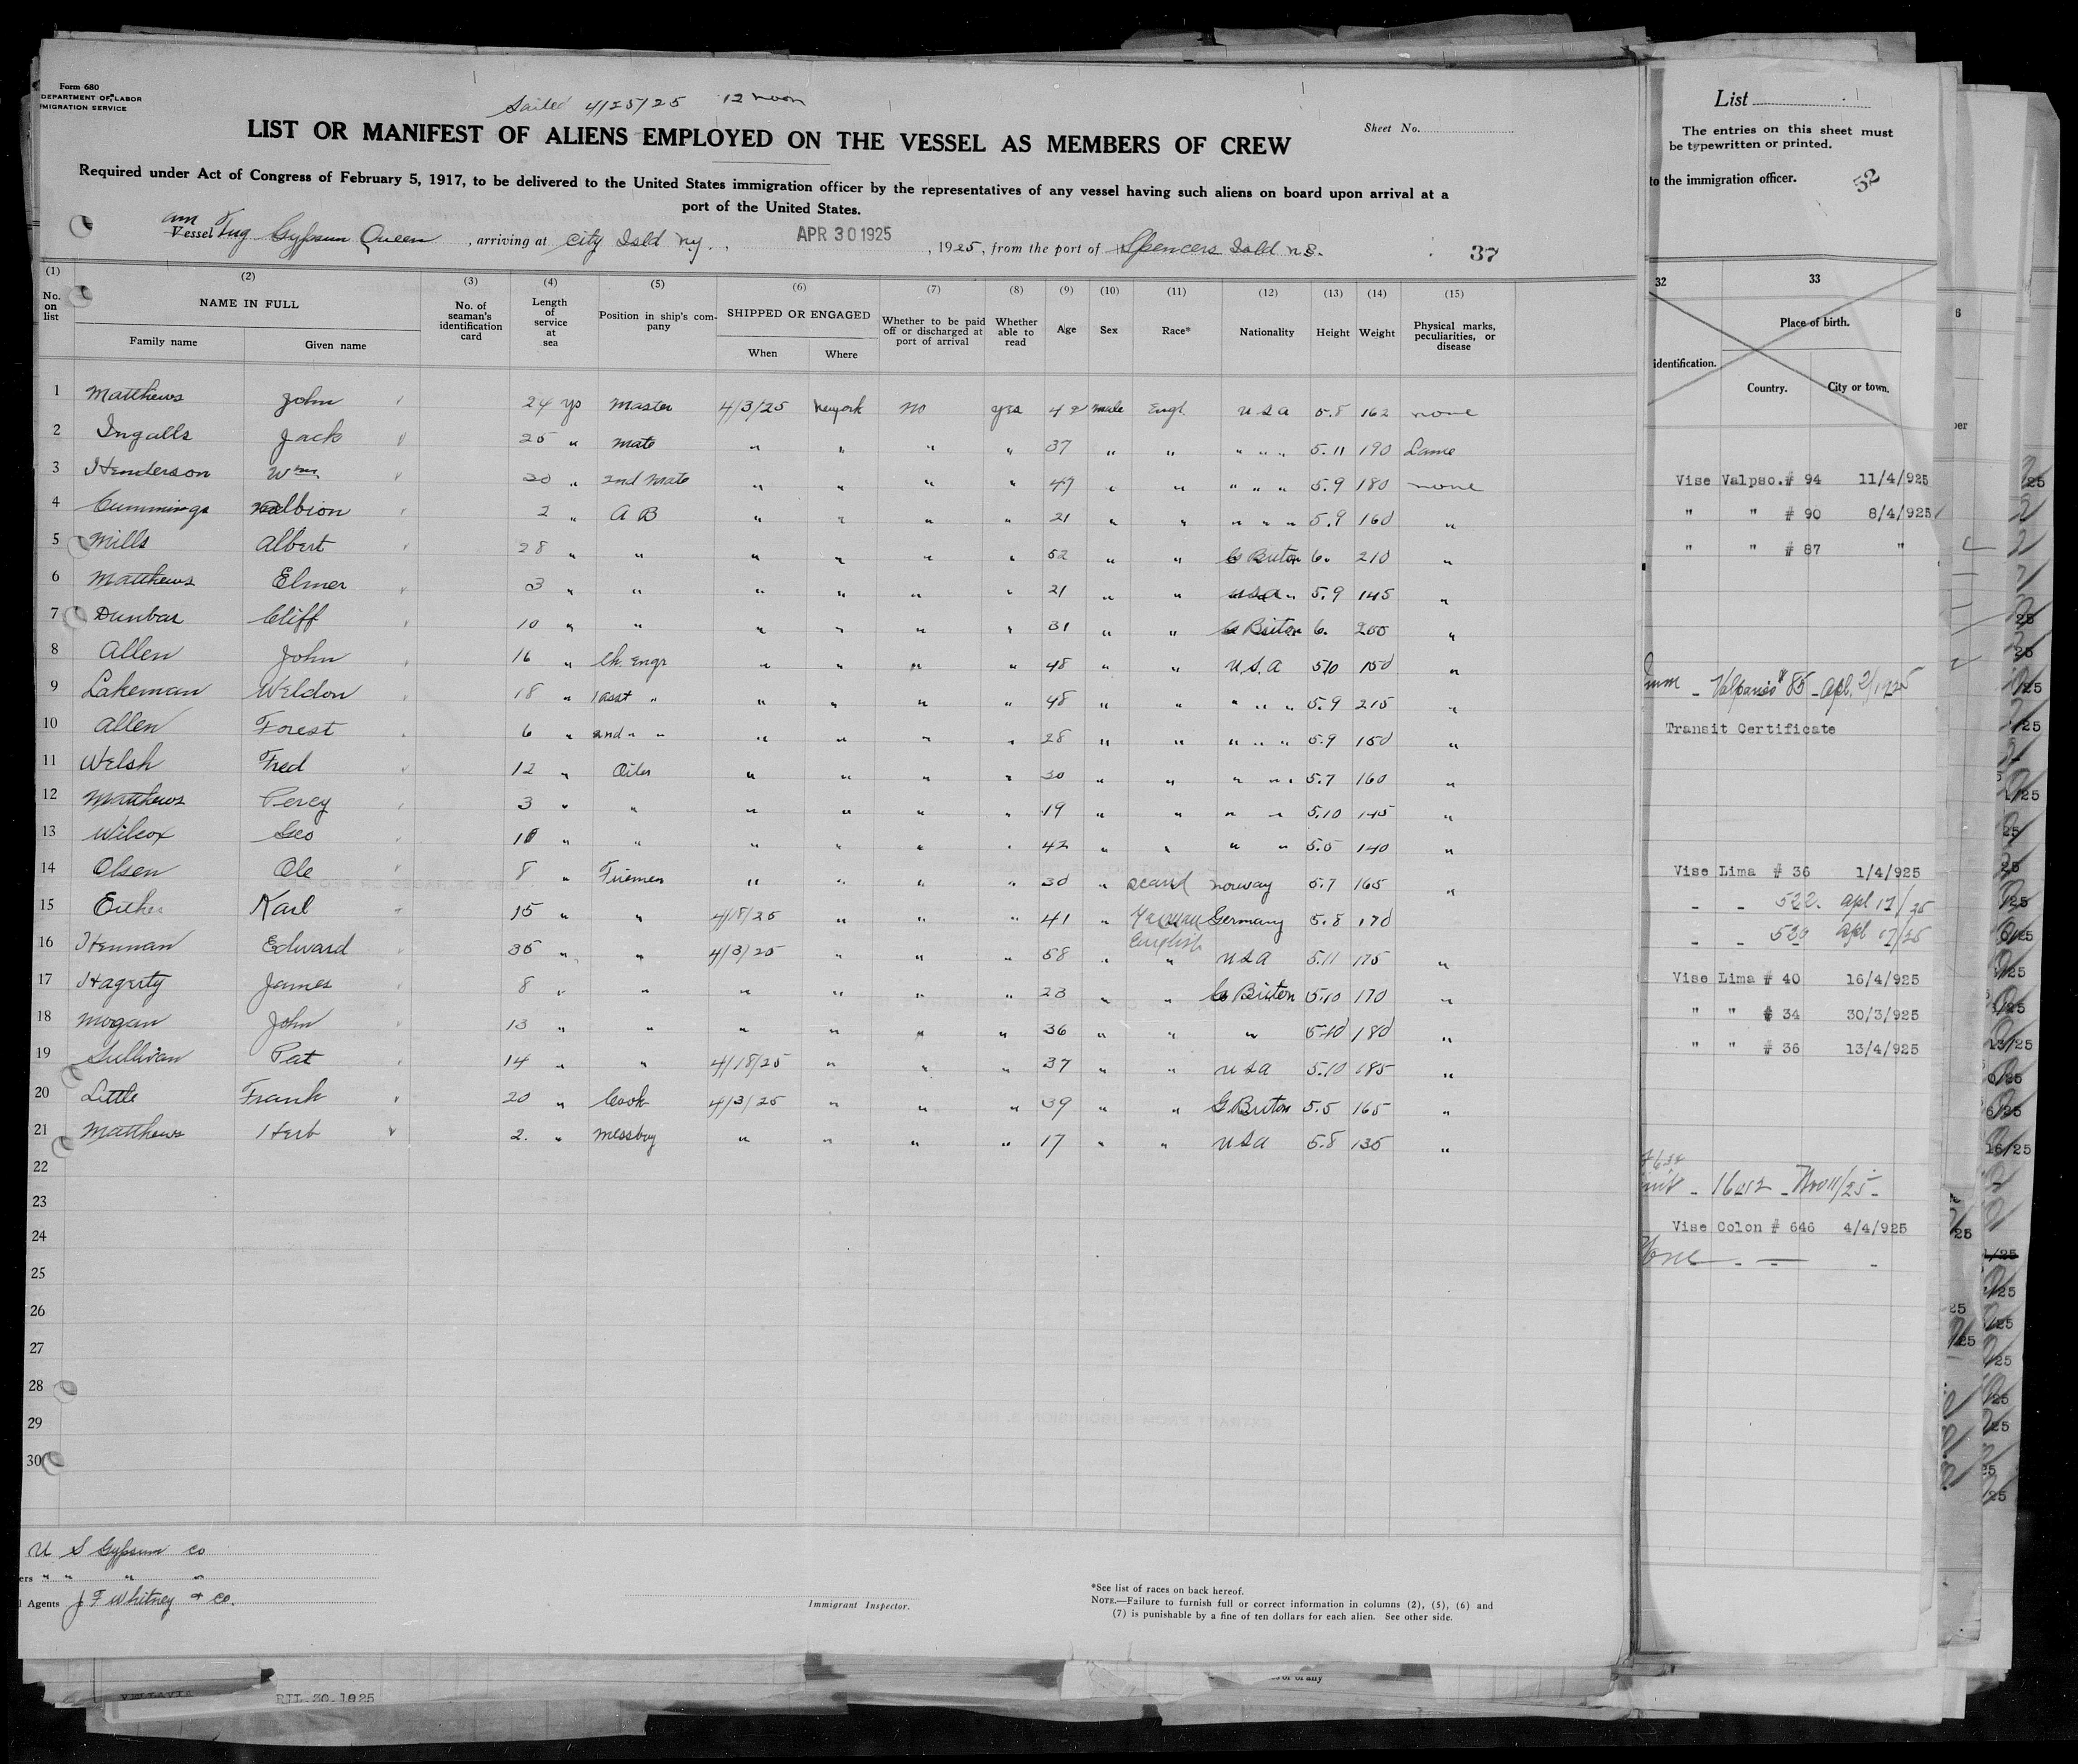 Form 680
DEPARTMENT OF LABOR
IMMIGRATION SERVICE
Sailed 4/25/25 12 noon
LIST OR MANIFEST OF ALIENS EMPLOYED ON THE VESSEL AS MEMBERS OF CREW
Sheet No.
Required under Act of Congress of February 5, 1917, to be delivered to the United States immigration officer by the representatives of any vessel having such aliens on board upon arrival at a
port of the United States.
am
Vessel Tug Gypsum Queen, arriving at City Isld Ny., APR 30 1925, 1925, from the port of Spencers Isld n.s. 37
(1) (2) (3) (4) (5) (6) (7) (8) (9) (10) (11) (12) (13) (14) (15)
No. on list NAME IN FULL Family name Given name No. of seaman's identification card Length of service at sea Position in ship's company SHIPPED OR ENGAGED When Where Whether to be paid off or discharged at port of arrival Whether able to read Age Sex Race* Nationality Height Weight Physical marks, peculiarities, or disease
1 Matthews John 24 ys Master 4/3/25 Newyork no yes 42 male Engl USA 5.8 162 none
2 Ingalls Jack 25 " Mate " " " " 37 " " " " " 5.11 190 Lame
3 Henderson Wm 20 " 2nd Mate " " " " 47 " " " " " 5.9 180 none
4 Cummings Albion 2 " A B " " " " 21 " " " " " 5.9 160 "
5 Mills Albert 28 " " " " " " 52 " " G Briton 6. 210 "
6 Matthews Elmer 3 " " " " " " 21 " " USA " 5.9 145 "
7 Dunbar Cliff 10 " " " " " " 31 " " G Briton 6. 200 "
8 Allen John 16 " Ch. Engr " " " " 48 " " U.S.A 5.10 150 "
9 Lakeman Weldon 18 " 1 asst " " " " " 48 " " " " " 5.9 215 "
10 Allen Forest 6 " 2nd " " " " " " 28 " " " " " 5.9 150 "
11 Welsh Fred 12 " Oiler " " " " 30 " " " " " 5.7 160 "
12 Matthews Percy 3 " " " " " " 19 " " " " 5.10 145 "
13 Wilcox Geo 10 " " " " " " 42 " " " " 5.5 140 "
14 Olsen Ole 8 " Firemen " " " " 30 " Scand Norway 5.7 165 "
15 Karl 15 " " 4/18/25 " " " 41 " German Germany 5.8 170
16 Hennan Edward 35 " " 4/3/25 " " " 58 " English " USA 5.11 175 "
17 Hagrity James 8 " " " " " " 23 " " G Briton 5.10 170 "
18 Mogan John 13 " " " " " " 36 " " " 5.10 180 "
19 Sullivan Pat 14 " " 4/18/25 " " " 37 " " USA 5.10 185 "
20 Little Frank 20 " Cook 4/3/25 " " " 39 " " G Briton 5.5 165 "
21 Matthews Herb 2. " Messboy " " " " 17 " " USA 5.8 135 "
22
23
24
25
26
27
28
29
30
U S Gypsum Co
ers " " " "
Agents J F Whitney & Co.
Immigrant Inspector.
*See list of races on back hereof.
NOTE.—Failure to furnish full or correct information in columns (2), (5), (6) and
(7) is punishable by a fine of ten dollars for each alien. See other side.
List
The entries on this sheet must
be typewritten or printed.
to the immigration officer.
52
32 33
identification. Place of birth.
Country. City or town.
Vise Valpso.# 94 11/4/925
" " # 90 8/4/925
" " # 87 "
Valparaiso # 85 - Apl. 2/1925
Transit Certificate
Vise Lima # 36 1/4/925
- - 522. apl 17/25
- - 529 apl 17/25
Vise Lima # 40 16/4/925
" " # 34 30/3/925
" " # 36 13/4/925
16012 - Nov 11/25 -
Vise Colon # 646 4/4/925
None - — -
RIL 30 1925